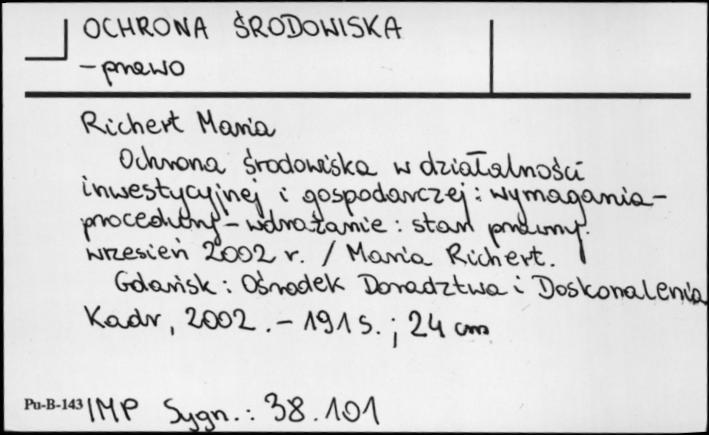 OCHRONA ŚRODOWISKA
- prawo
Richert Maria
Ochrona środowiska w działalności
inwestycyjnej i gospodarczej : wymagania -
procedury - wdrażanie : stan prawny.
wrzesień 2002 r. / Maria Richert.
Gdańsk : Ośrodek Doradztwa i Doskonalenia
Kadr, 2002. - 191 s. ; 24 cm
Pu-B-143 IMP Sygn. : 38.101